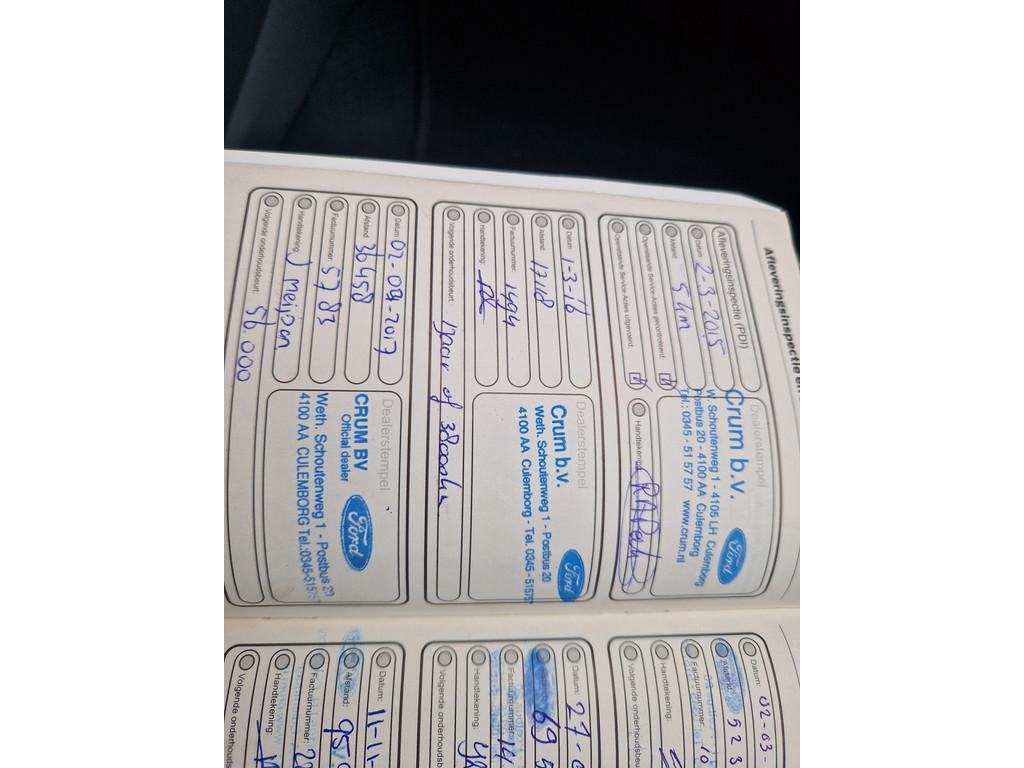 Afleveringsinspectie en
Afleveringsinspectie (PDI)
Datum: 2-3-2015
Afstand: 5 km
Openstaande Service-Acties gecontroleerd:
Openstaande Service-Acties uitgevoerd:
Dealerstempel
Crum b.v.
Ford
W. Schoutenweg 1 - 4105 LH Culemborg
Postbus 20 - 4100 AA Culemborg
Tel.: 0345 - 51 57 57 www.crum.nl
Handtekening:
Datum: 1-3-16
Afstand: 17118
Factuurnummer: 1494
Handtekening:
Volgende onderhoudsbeurt: 1 Jaar of 38000km
Dealerstempel
Crum b.v.
Ford
Weth. Schoutenweg 1 - Postbus 20
4100 AA Culemborg - Tel. 0345 - 51575
Datum: 02-09-2017
Afstand: 36458
Factuurnummer: 5783
Handtekening: J meijson
Volgende onderhoudsbeurt: 56.000
Dealerstempel
CRUM BV
Official dealer
Ford
Weth. Schoutenweg 1 - Postbus 20
4100 AA CULEMBORG Tel.:0345-51575
Datum: 02-03-
Afstand: 523
Factuurnummer: 10
Handtekening:
Volgende onderhoudsbeu
Datum: 27-
69
Factuurnummer: 14
Handtekening:
Volgende onderhoudsb
Datum: 11-11-
Afstand: 95
Factuurnummer: 22
Handtekening:
Volgende onderhoudsb